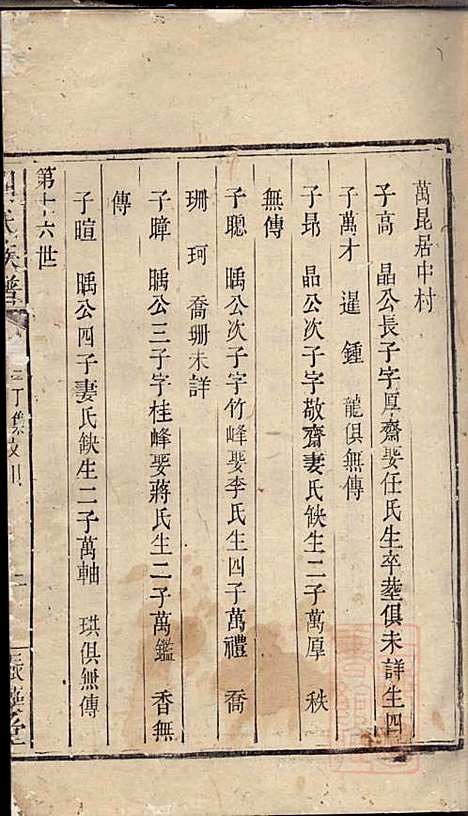 萬昆居中村
子高 晶公長子字厚齋娶任氏生卒塟俱未詳生四
子萬才 暹 鍾 龍俱無傳
子昻 晶公次子字敬齋妻氏缺生二子萬厚 秩
無傳
子聰 㬉公次子字竹峰娶李氏生四子萬禮 喬
珊 珂 喬珊未詳
子暲 㬉公三子字桂峰娶蔣氏生二子萬鑑 香無
傳
子暄 㬉公四子妻氏缺生二子萬軸 珙俱無傳
第十六世
氏族譜